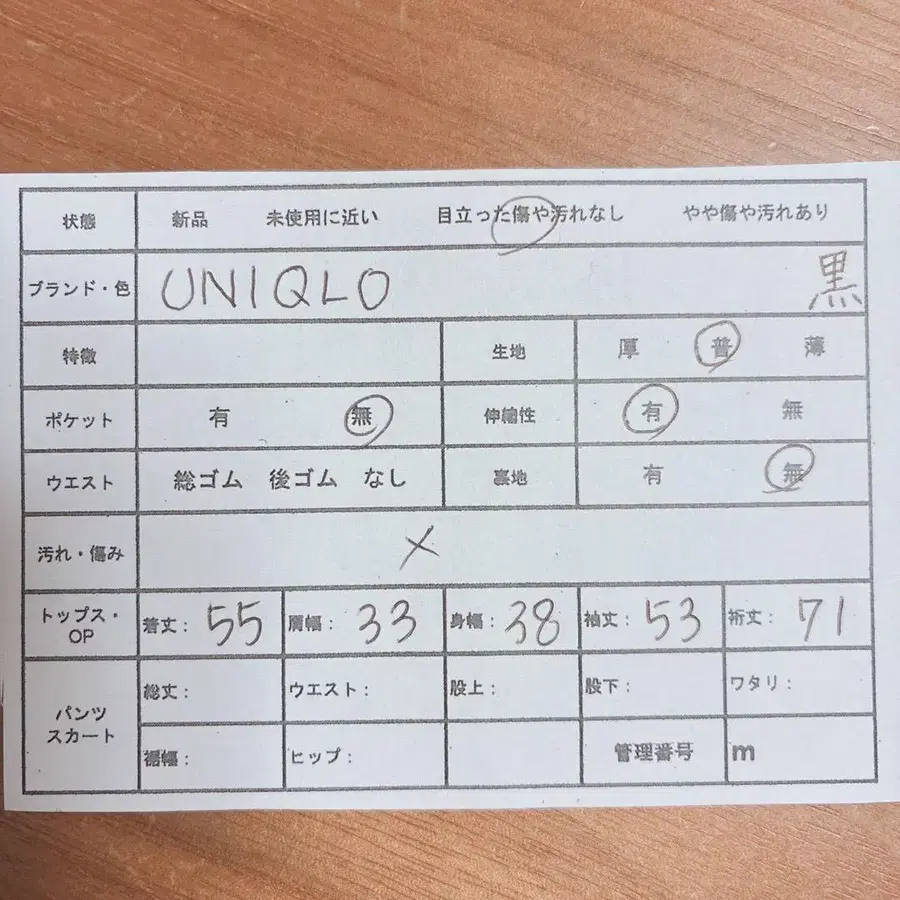 状態 新品 未使用に近い 目立った傷や汚れなし やや傷や汚れあり
ブランド・色 UNIQLO 黒
特徴 生地 厚 普 薄
ポケット 有 無 伸縮性 有 無
ウエスト 総ゴム 後ゴム なし 裏地 有 無
汚れ・傷み ×
トップス・
OP 着丈: 55 肩幅: 33 身幅: 38 袖丈: 53 裄丈: 71
パンツ
スカート 総丈: ウエスト: 股上: 股下: ワタリ:
裾幅: ヒップ: 管理番号 m